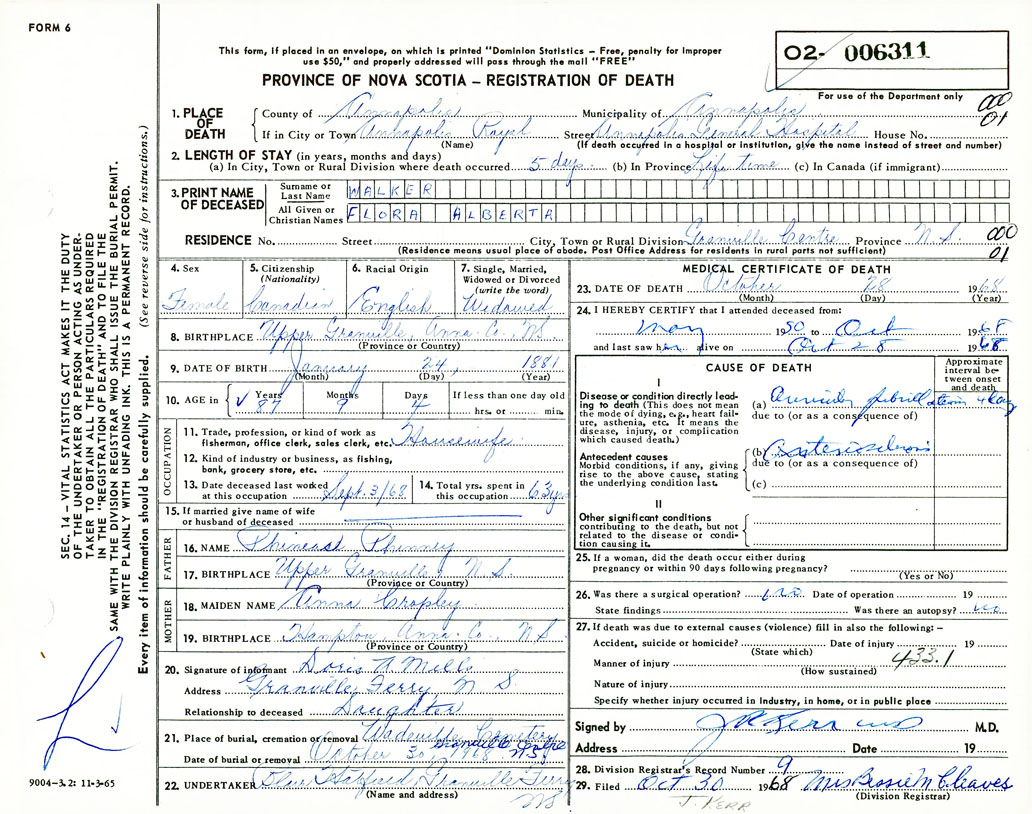 FORM 6
This form, if placed in an envelope, on which is printed "Dominion Statistics – Free, penalty for improper
use $50," and properly addressed will pass through the mail "FREE"
PROVINCE OF NOVA SCOTIA – REGISTRATION OF DEATH
02- 006311
For use of the Department only
000
01
1. PLACE OF DEATH
County of Annapolis Municipality of Annapolis
If in City or Town Annapolis Royal Street Annapolis General Hospital House No.
(Name) (If death occurred in a hospital or institution, give the name instead of street and number)
2. LENGTH OF STAY (in years, months and days)
(a) In City, Town or Rural Division where death occurred 5 days (b) In Province Life time (c) In Canada (if immigrant)
3. PRINT NAME OF DECEASED
Surname or Last Name WALKER
All Given or Christian Names FLORA ALBERTA
RESIDENCE No. Street City, Town or Rural Division Granville Centre Province N.S.
(Residence means usual place of abode. Post Office Address for residents in rural parts not sufficient)
000
01
4. Sex
Female
5. Citizenship
(Nationality)
Canadian
6. Racial Origin
English
7. Single, Married,
Widowed or Divorced
(write the word)
Widowed
8. BIRTHPLACE Upper Granville, Anna. Co., NS
(Province or Country)
9. DATE OF BIRTH January 24, 1881
(Month) (Day) (Year)
10. AGE in Years Months Days If less than one day old
87 9 4 hrs. or min.
OCCUPATION
11. Trade, profession, or kind of work as
fisherman, office clerk, sales clerk, etc. Housewife
12. Kind of industry or business, as fishing,
bank, grocery store, etc.
13. Date deceased last worked
at this occupation Sept. 3/68
14. Total yrs. spent in
this occupation 63 yrs
15. If married give name of wife
or husband of deceased
FATHER
16. NAME Phineas Phinney
17. BIRTHPLACE Upper Granville, N.S.
(Province or Country)
MOTHER
18. MAIDEN NAME Anna Cropley
19. BIRTHPLACE Hampton, Anna. Co., N.S
(Province or Country)
20. Signature of informant Doris A Mills
Address Granville Ferry, N S.
Relationship to deceased Daughter
21. Place of burial, cremation or removal Wadeville Cemetery
Granville Centre
N.S.
Date of burial or removal October 30, 1968
22. UNDERTAKER Granville Ferry
NS
(Name and address)
MEDICAL CERTIFICATE OF DEATH
23. DATE OF DEATH October 28 1968
(Month) (Day) (Year)
24. I HEREBY CERTIFY that I attended deceased from:
May 1950 to Oct 1968
and last saw her alive on Oct 28 1968
CAUSE OF DEATH
Approximate
interval be-
tween onset
and death
I
Disease or condition directly lead-
ing to death (This does not mean
the mode of dying, e.g., heart fail-
ure, asthenia, etc. It means the
disease, injury, or complication
which caused death.)
(a) Auricular fibrillation 4 days
due to (or as a consequence of)
Antecedent causes
Morbid conditions, if any, giving
rise to the above cause, stating
the underlying condition last.
(b) Arteriosclerosis
due to (or as a consequence of)
(c)
II
Other significant conditions
contributing to the death, but not
related to the disease or condi-
tion causing it.
25. If a woman, did the death occur either during
pregnancy or within 90 days following pregnancy?
(Yes or No)
26. Was there a surgical operation? no Date of operation 19
State findings Was there an autopsy? no
27. If death was due to external causes (violence) fill in also the following: –
Accident, suicide or homicide? Date of injury 19
(State which)
433.1
Manner of injury
(How sustained)
Nature of injury
Specify whether injury occurred in industry, in home, or in public place
Signed by J R Kerr M.D.
Address Date 19
28. Division Registrar's Record Number 9
29. Filed Oct 30 1968 Mrs Bessie McCleaves
(Division Registrar)
J. KERR
SEC. 14 – VITAL STATISTICS ACT MAKES IT THE DUTY
OF THE UNDERTAKER OR PERSON ACTING AS UNDER-
TAKER TO OBTAIN ALL THE PARTICULARS REQUIRED
IN THE "REGISTRATION OF DEATH" AND TO FILE THE
SAME WITH THE DIVISION REGISTRAR WHO SHALL ISSUE THE BURIAL PERMIT.
WRITE PLAINLY WITH UNFADING INK. THIS IS A PERMANENT RECORD.
Every item of information should be carefully supplied. (See reverse side for instructions.)
9004–3.2: 11-3-65